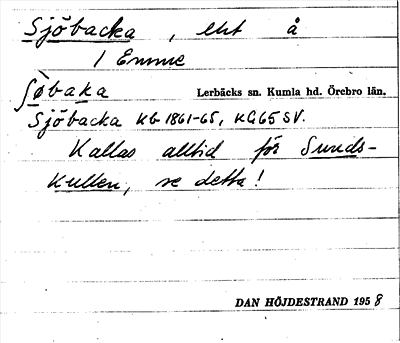 Sjöbacka, ekt å
1 Emme
ʃøbaka Lerbäcks sn. Kumla hd. Örebro län.
Sjöbacka KG 1861-65, KG 65 SV.
Kallas alltid för Sunds-
kullen, se detta!
DAN HÖJDESTRAND 1958